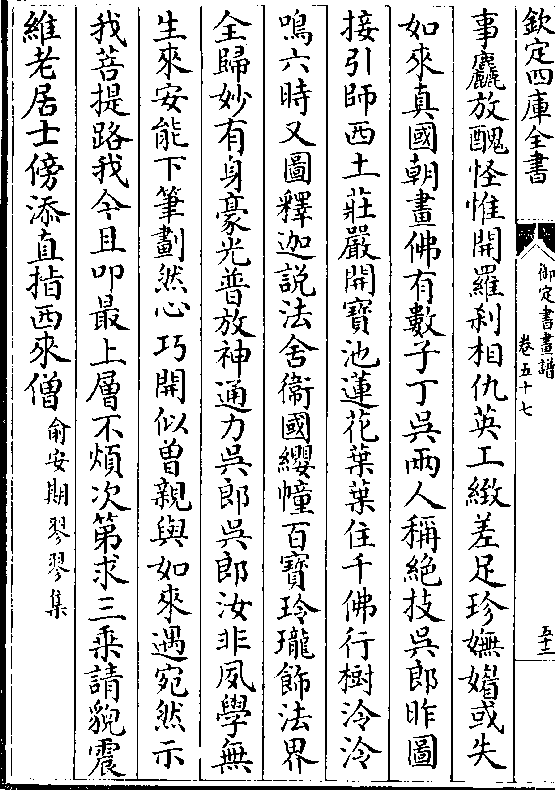 欽定四庫全書
御定書畫譜
卷五十七
五十二
事麤放醜怪惟開羅刹相仇英工緻差足珍嫵媚或失
如來真國朝畫佛有數子丁吳兩人稱絶技吳郎昨圖
接引師西土莊嚴開寶池蓮花葉葉住千佛行樹泠泠
鳴六時又圖釋迦説法舍衛國纓幢百寶玲瓏飾法界
全歸妙有身豪光普放神通力吳郎吳郎汝非夙學無
生來安能下筆劃然心巧開似曽親與如來遇宛然示
我菩提路我今且叩最上層不煩次第求三乘請貌震
維老居士傍添直指西來僧俞安期翏翏集